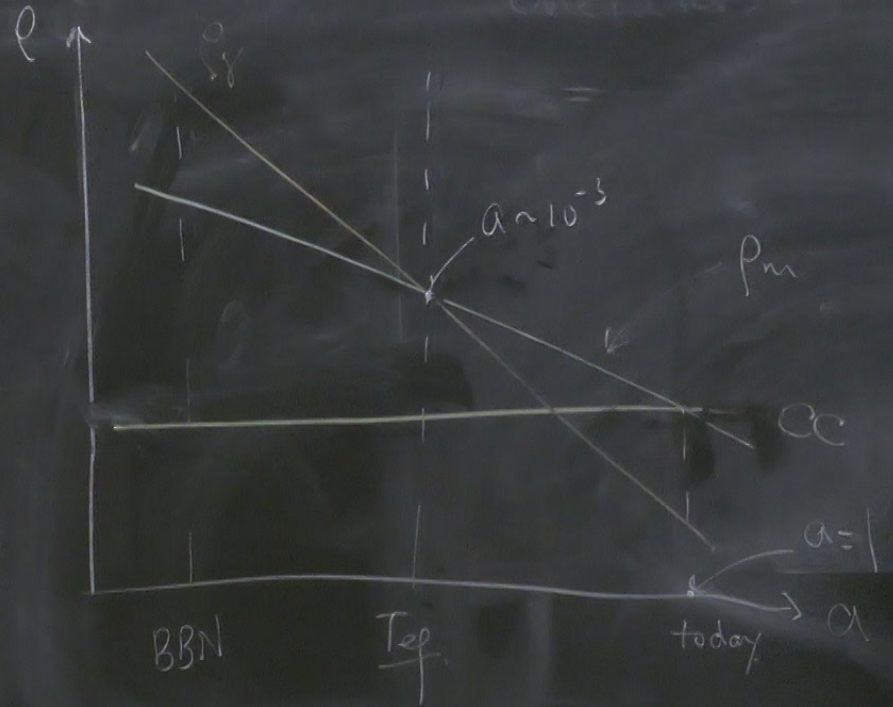 ρ
ργ
a~10⁻³
ρm
CC
a=1
a
BBN
Teq
today